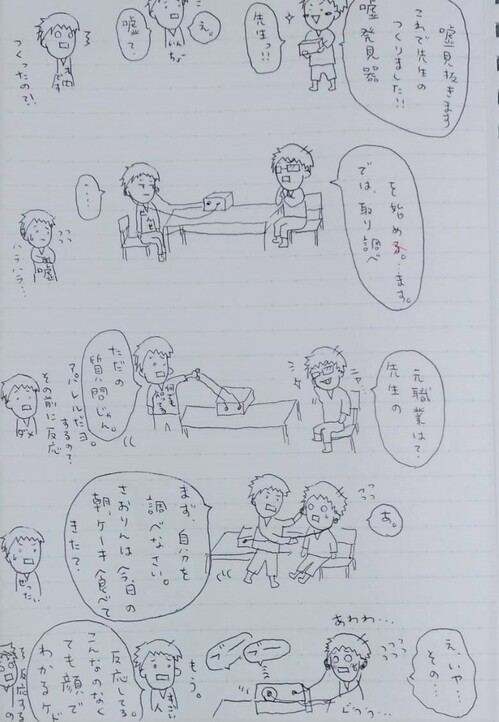 これで先生の
嘘見抜きます
つくりました!!
嘘発見器
先生っ!!
え。
嘘て。
つくったの?!
では、取り調べ
を始める。…ます。
……。
ハラハラ…
嘘
先生の
元職業は?
ニヤ
ただの
質問じゃん。
アパレルだヨ。
その前に反応
するの?
ダメ
あ。
まず、自分を
調べなさい。
さおりんは今日の
朝、ケーキ食べて
きた?
ぜったい
え、いや…
その…
あわわ…
ブー
ブー
もう。
反応してる。
こんなのなく
ても顔で
わかるケド
反応する
の